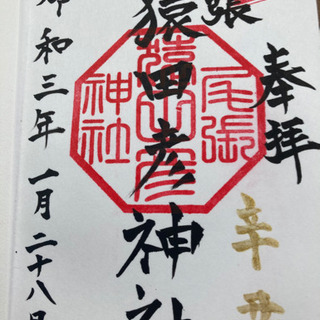 奉拝
辛丑
張
猿田彦神社
令和三年一月二十八日
尾張
猿田彦
神社